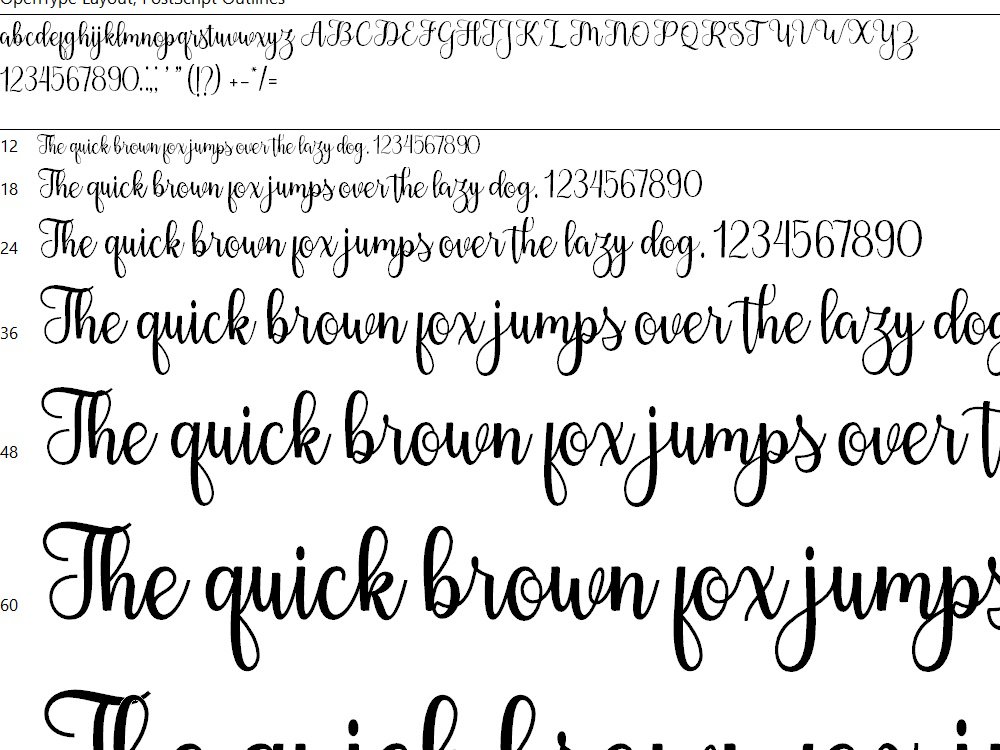 OpenType Layout, PostScript Outlines
abcdefghijklmnopqrstuvwxyz ABCDEFGHIJKLMNOPQRSTUVWXYZ
1234567890.:,; ' " (!?) +-*/=
12 The quick brown fox jumps over the lazy dog. 1234567890
18 The quick brown fox jumps over the lazy dog. 1234567890
24 The quick brown fox jumps over the lazy dog. 1234567890
36 The quick brown fox jumps over the lazy dog
48 The quick brown fox jumps over t
60 The quick brown fox jumps
The quick brown fox ju